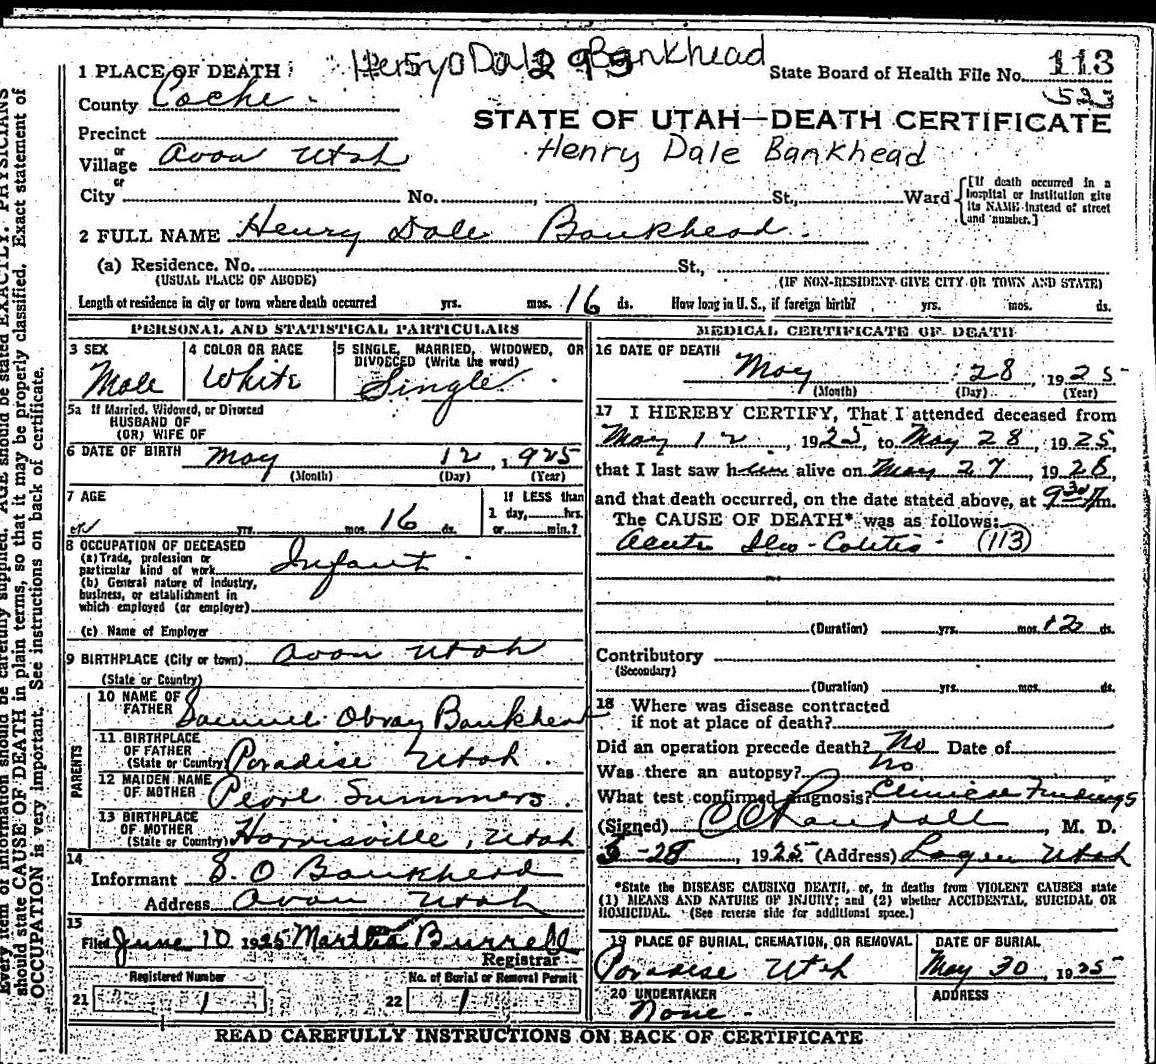 Henry Dale Bankhead
1 PLACE OF DEATH
State Board of Health File No. 113
County Cache
STATE OF UTAH—DEATH CERTIFICATE
Precinct
or
Village Avon Utah
Henry Dale Bankhead
or
City No. , St., Ward
[If death occurred in a hospital or institution give its NAME instead of street and number.]
2 FULL NAME Henry Dale Bankhead
(a) Residence. No. St.,
(USUAL PLACE OF ABODE) (IF NON-RESIDENT GIVE CITY OR TOWN AND STATE)
Length of residence in city or town where death occurred yrs. mos. 16 ds. How long in U. S., if foreign birth? yrs. mos. ds.
PERSONAL AND STATISTICAL PARTICULARS
3 SEX
Male
4 COLOR OR RACE
White
5 SINGLE, MARRIED, WIDOWED, OR
DIVORCED (Write the word)
Single
5a If Married, Widowed, or Divorced
HUSBAND OF
(OR) WIFE OF
6 DATE OF BIRTH May 12, 1925
(Month) (Day) (Year)
7 AGE
yrs. mos. 16 ds.
If LESS than
1 day, hrs.
or min.?
8 OCCUPATION OF DECEASED
(a) Trade, profession or
particular kind of work Infant
(b) General nature of industry,
business, or establishment in
which employed (or employer)
(c) Name of Employer
9 BIRTHPLACE (City or town) Avon Utah
(State or Country)
PARENTS
10 NAME OF
FATHER Samuel Obray Bankhead
11 BIRTHPLACE
OF FATHER
(State or Country) Paradise Utah.
12 MAIDEN NAME
OF MOTHER Pearl Summers.
13 BIRTHPLACE
OF MOTHER
(State or Country) Harrisville, Utah
14
Informant S. O Bankhead
Address Avon Utah
15
Filed June 10 1925 Martha Burrell
Registrar
Registered Number
21 1
No. of Burial or Removal Permit
22 1
MEDICAL CERTIFICATE OF DEATH
16 DATE OF DEATH
May 28 1925
(Month) (Day) (Year)
17 I HEREBY CERTIFY, That I attended deceased from
May 12, 1925, to May 28, 1925,
that I last saw him alive on May 27, 1925,
and that death occurred, on the date stated above, at 9 30 Am.
The CAUSE OF DEATH* was as follows:
Acute Ileo-Colitis (113)
(Duration) yrs. mos. 12 ds.
Contributory
(Secondary)
(Duration) yrs. mos. ds.
18 Where was disease contracted
if not at place of death?
Did an operation precede death? No Date of
Was there an autopsy? No
What test confirmed diagnosis? Clinical Findings
(Signed) C C Randall, M. D.
5-28, 1925 (Address) Logan Utah
*State the DISEASE CAUSING DEATH, or, in deaths from VIOLENT CAUSES state
(1) MEANS AND NATURE OF INJURY; and (2) whether ACCIDENTAL, SUICIDAL OR
HOMICIDAL. (See reverse side for additional space.)
19 PLACE OF BURIAL, CREMATION, OR REMOVAL
Paradise Utah
DATE OF BURIAL
May 30, 1925
20 UNDERTAKER
None
ADDRESS
READ CAREFULLY INSTRUCTIONS ON BACK OF CERTIFICATE
Every item of information should be carefully supplied. AGE should be stated EXACTLY. PHYSICIANS
should state CAUSE OF DEATH in plain terms, so that it may be properly classified. Exact statement of
OCCUPATION is very important. See instructions on back of certificate.